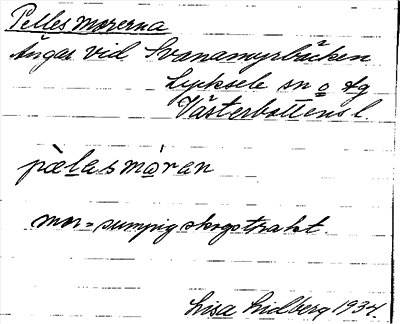 Pelles morerna
Ängar vid Svanamyrbäcken
Lycksele sn o tg
Västerbottens l.
pæ̀lasmǫ̀ran
mor = sumpig skogstrakt.
Lisa Lidberg 1934.